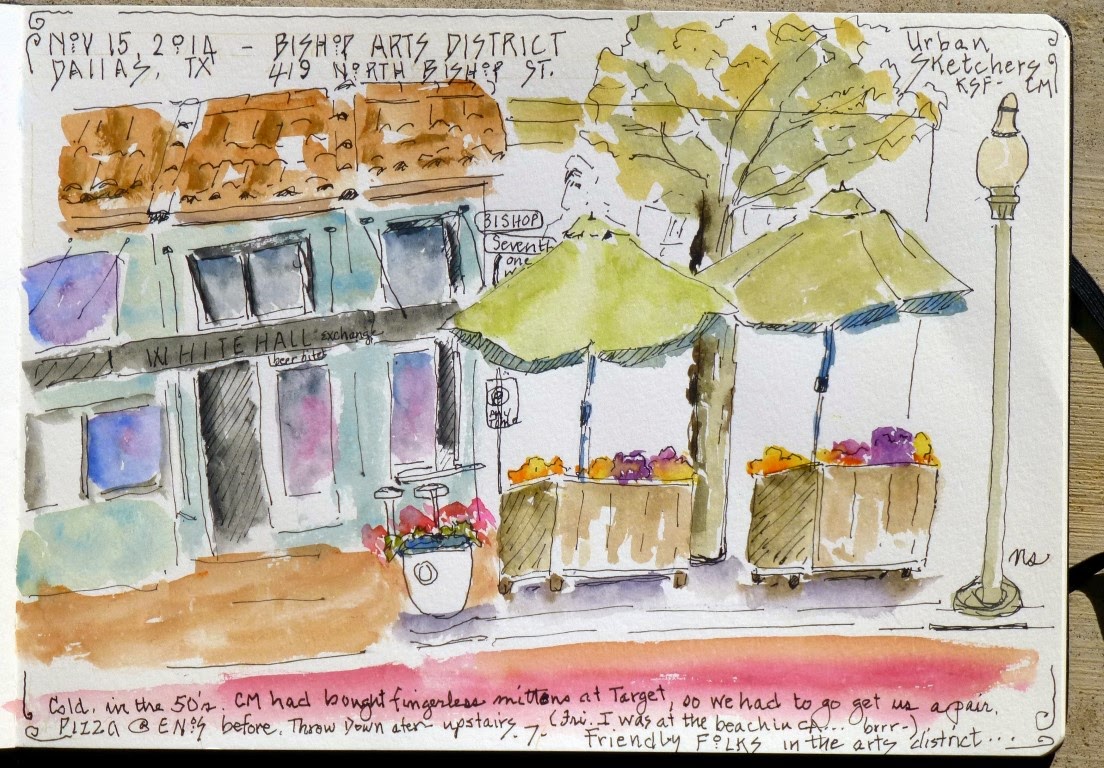 NOV 15, 2014 - BISHOP ARTS DISTRICT
DALLAS, TX 419 NORTH BISHOP ST.
Urban
Sketchers
KSF- CM
BISHOP
Seventh
one
WHITEHALL exchange
ns
Cold, in the 50's. CM had bought fingerless mittens at Target, so we had to go get us a pair.
PIZZA @ ENO'S before. Throw Down after upstairs. (Fri. I was at the beach in CA... brrr-)
Friendly FOLKS in the arts district...